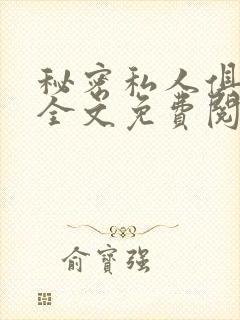 秘密私人俱
全文免费阅
俞寳强